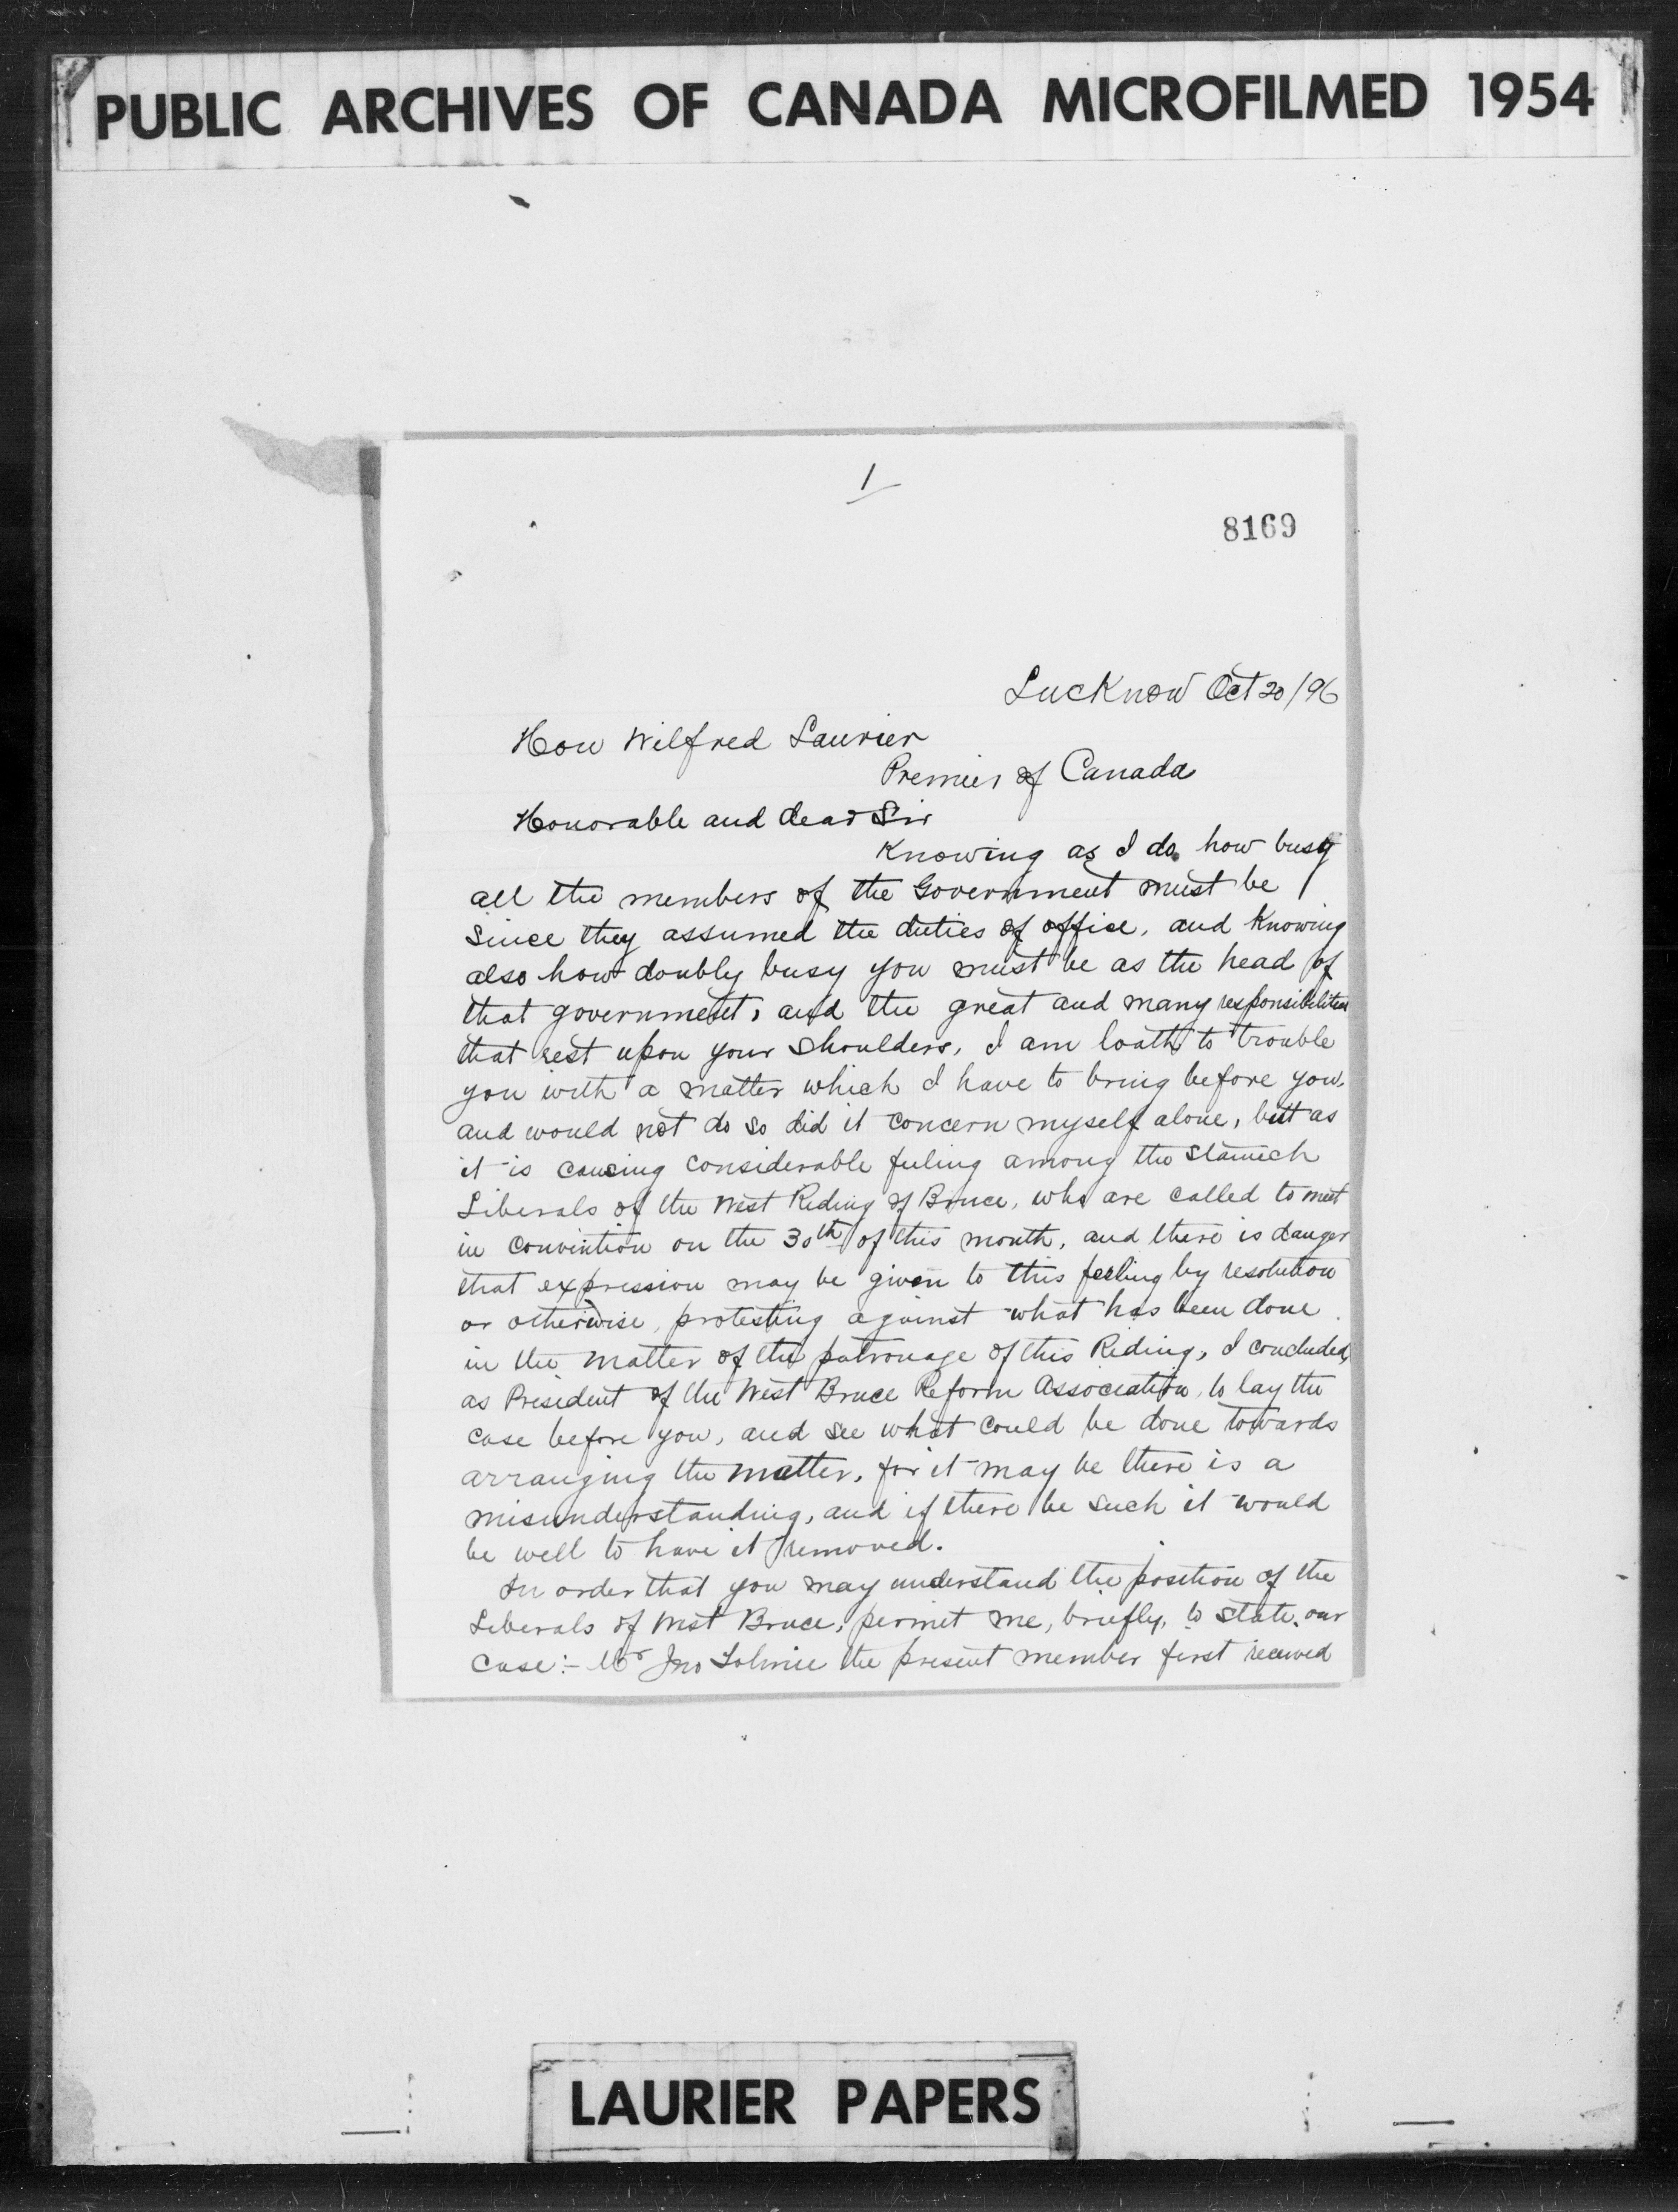 PUBLIC ARCHIVES OF CANADA MICROFILMED 1954
1
8169
Lucknow Oct 20/96
Hon Wilfred Laurier
Premier of Canada
Honorable and dear Sir
Knowing as I do how busy
all the members of the Government must be
since they assumed the duties of office, and knowing
also how doubly busy you must be as the head of
that government, and the great and many responsibilities
that rest upon your shoulders, I am loath to trouble
you with a matter which I have to bring before you,
and would not do so did it concern myself alone, but as
it is causing considerable feeling among the staunch
Liberals of the West Riding of Bruce, who are called to meet
in convention on the 30th of this month, and there is danger
that expression may be given to this feeling by resolution
or otherwise, protesting against what has been done
in the matter of the patronage of this Riding, I concluded,
as President of the West Bruce Reform Association, to lay the
case before you, and see what could be done towards
arranging the matter, for it may be there is a
misunderstanding, and if there be such it would
be well to have it removed.
In order that you may understand the position of the
Liberals of West Bruce, permit me, briefly, to state our
case:- Mr Jno Tolmie the present member first received
LAURIER PAPERS